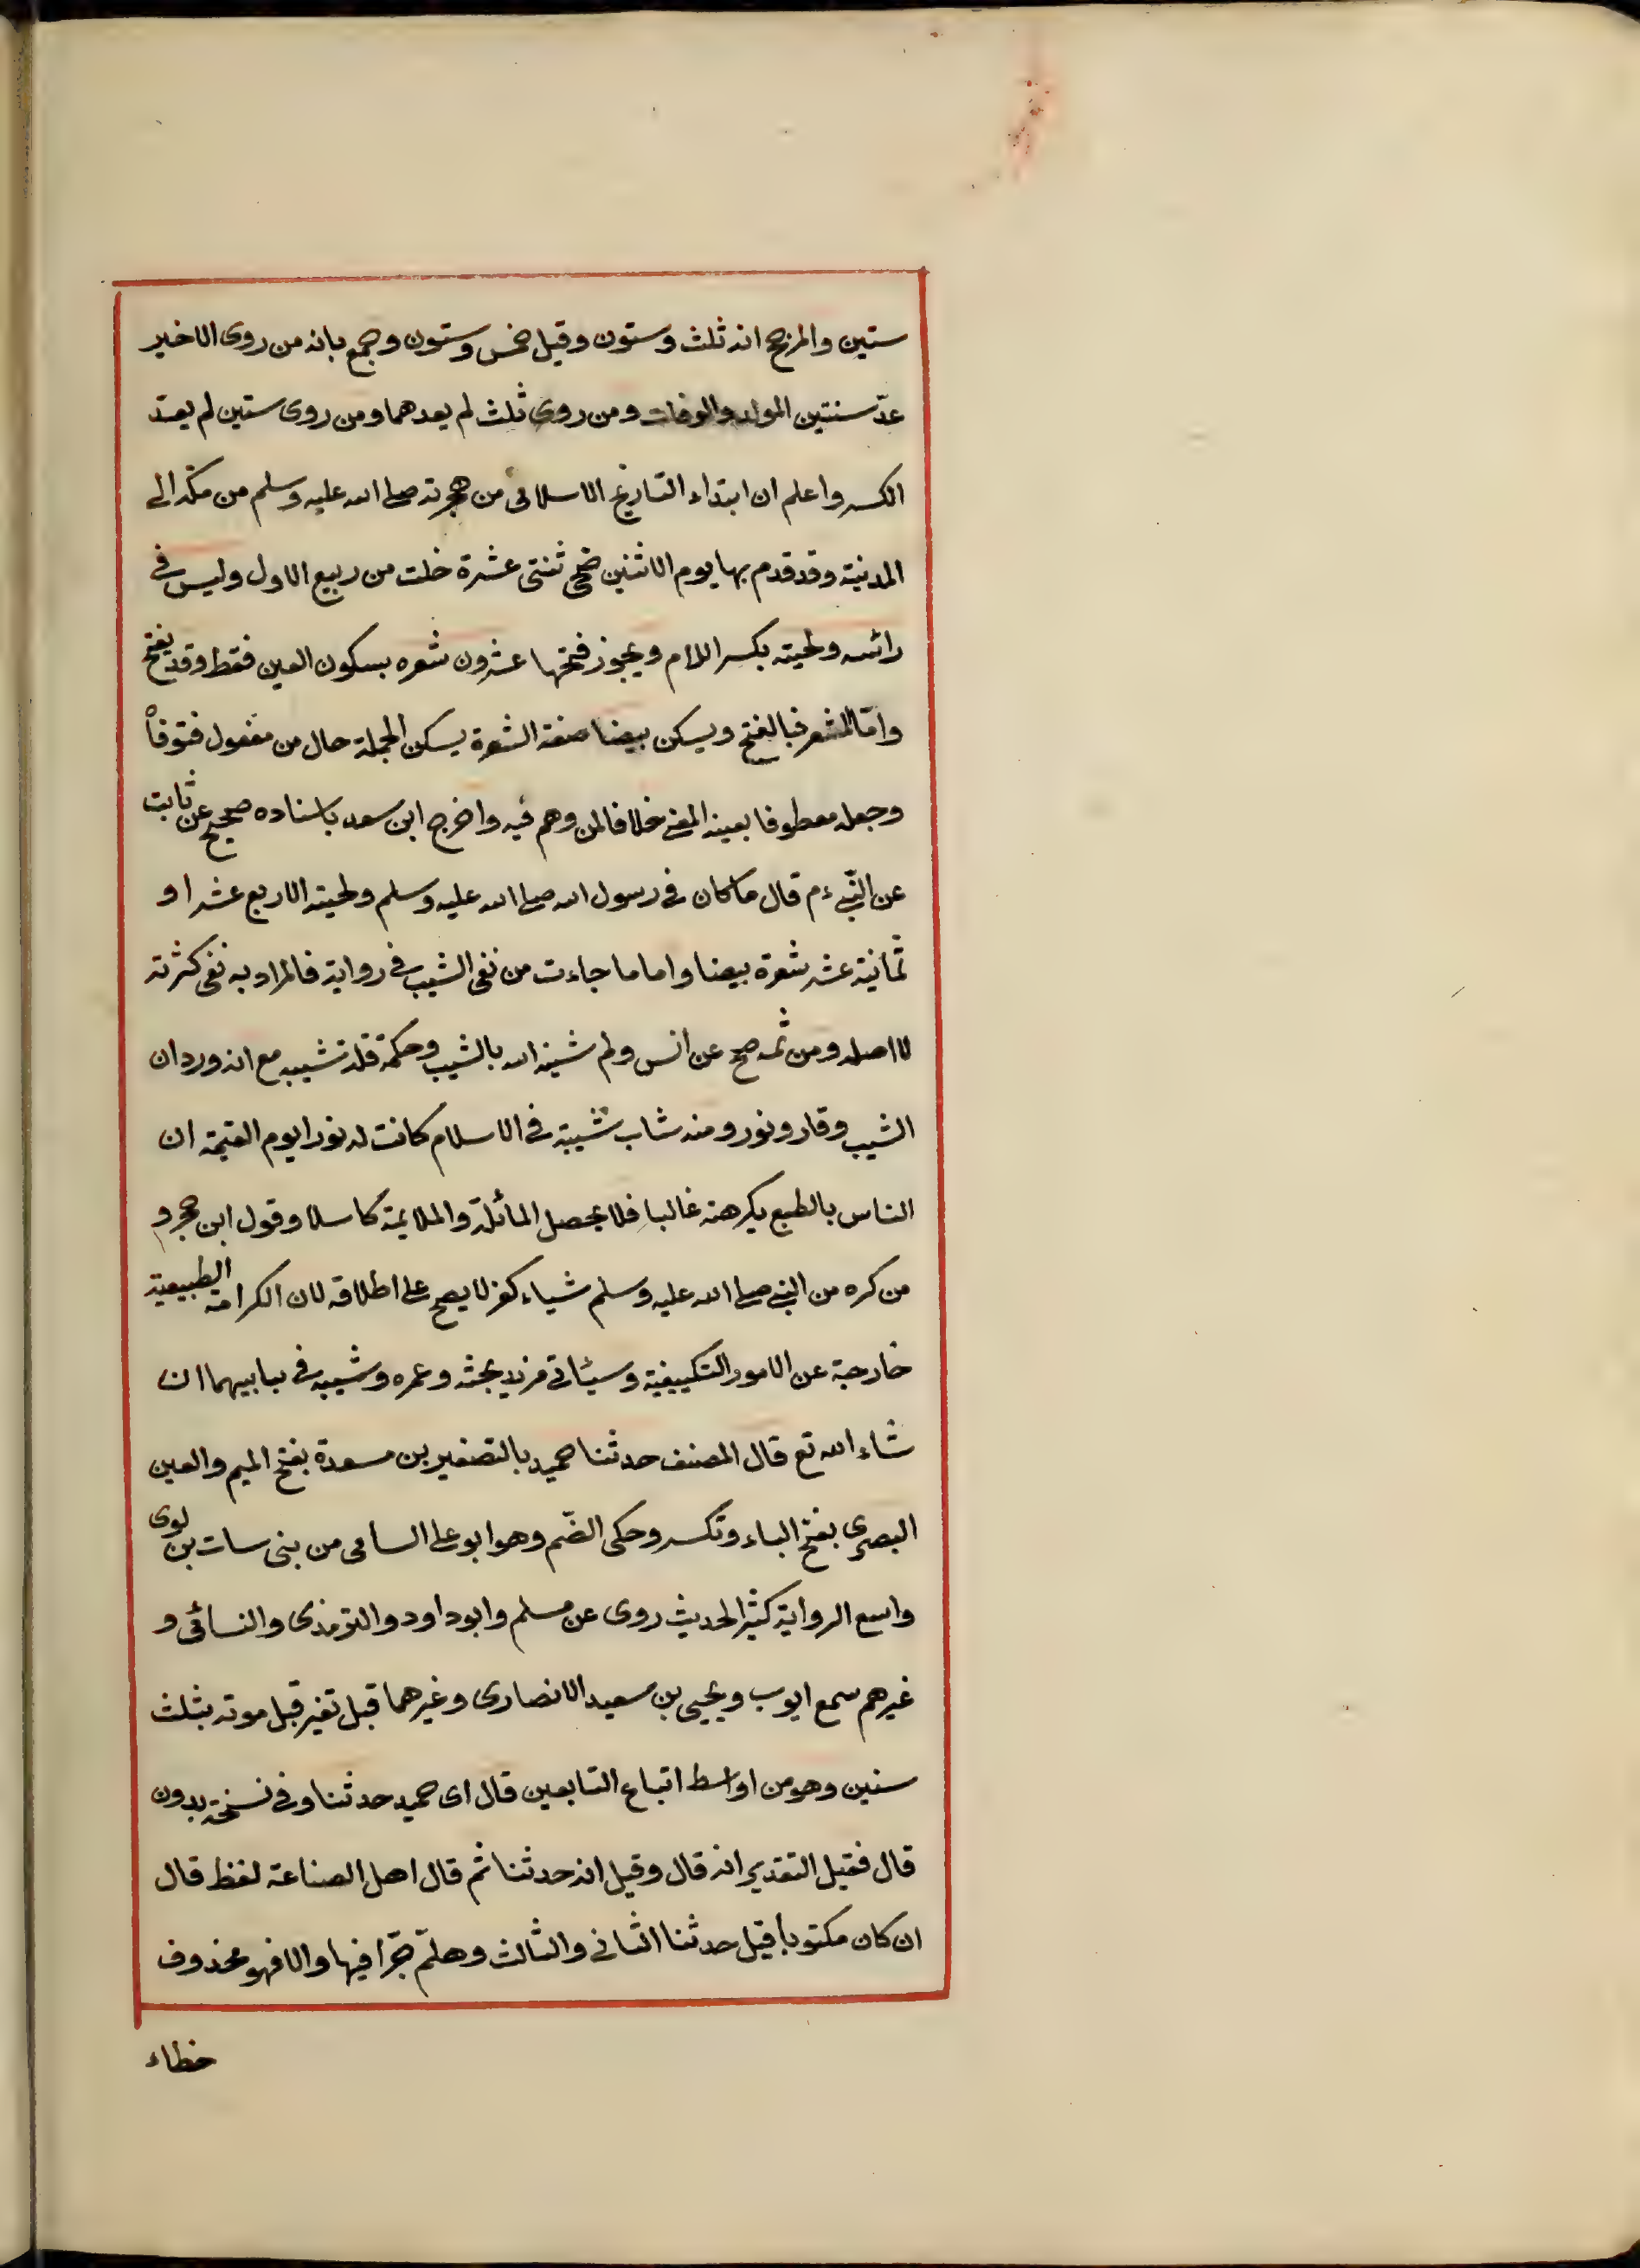 ستين والمرجح انه ثلث وستون وقيل خمس وستون وجمع بانه من روى الاخير
عدّ سنتين المولد والوفات ومن روى ثلث لم يعدهما ومن روى ستين لم يعدّ
الكسر واعلم ان ابتداء التاريخ الاسلامي من هجرته صلى الله عليه وسلم من مكة الى
المدينة وقد قدم بها يوم الاثنين ضحى ثنتى عشرة خلت من ربيع الاول وليس في
رائسه ولحيته بكسر اللام ويجوز فتحها عشرون شعره بسكون العين فقط وقد يفتح
وامّا الشعر فبالفتح ويسكن بيضا صفة الشعرة يسكن الجملة حال من مفعول فتوفاْ
وجعله معطوفا بعينه المغى خلافا لمن وهم فيه واخرج ابن سعد باسناده صحيح عن ثابت
عن النّبيّ ءم قال ما كان في رسول الله صلى الله عليه وسلم ولحيته الا اربع عشر او
ثمانية عشر شعرة بيضا واما ما جاءت من نفى الشيب في رواية فالمراد به نفى كثرته
لا اصله ومن ثمه صح عن انس ولم شينه الله بالشيب وحكمة قلة شيبه مع انه ورد ان
الشيب وقار ونور ومنه شاب شيبة في الاسلام كانت له نورا يوم القيمة ان
الناس بالطبع يكرهنه غالبا فلا يحصل المائلة والملايمة كاسلا وقول ابن حجر و
من كره من النبي صلى الله عليه وسلم شياء كفر لا يصح على اطلاقه لان الكرامة الطبيعية
خارجة عن الامور التكييفية وسيئاتي مزيد بحثه وعمره وشيبه في بابيهما ان
شاء الله تع قال المصنف حدثنا حميد بالتصغير بن مسعدة بفتح الميم والعين
البصرى بفتح الباء وتكسر وحكى الضّم وهو ابو على السامى من بنى سات بن لوى
واسع الرواية كثير الحديث روى عن مسلم وابو داود والترمذى والنسائى و
غيرهم سمع ايوب ويحيى بن سعيد الانصارى وغيرهما قبل تغير قبل موته بثلث
سنين وهو من اواسط اتباع التابعين قال اى حميد حدثنا وفى نسخة بدون
قال فقيل التقدير انه قال وقيل انه حدثنا ثم قال اهل الصناعة لفظ قال
ان كان مكتوباً قيل حدثنا الثانى والثالث وهلمّ جرّا فيها والا فهو محذوف
خطاء